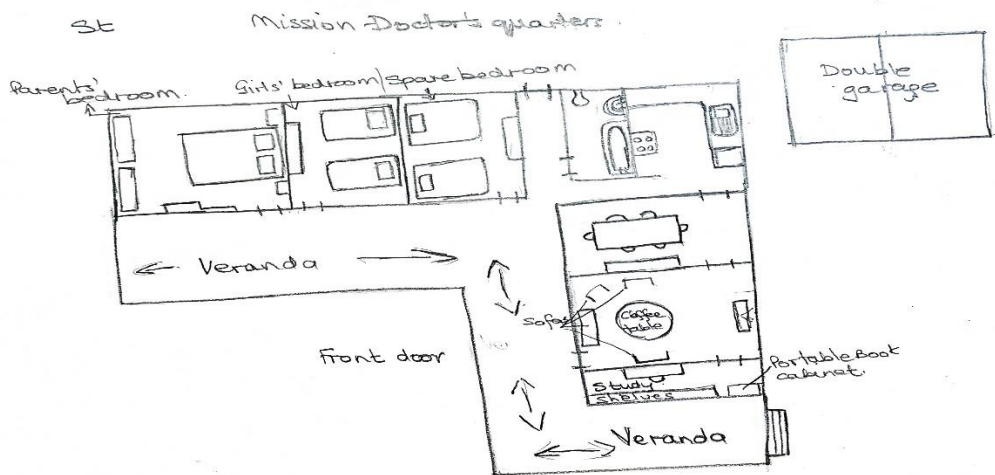 St
Mission Doctor's quarters.
Double
garage
Parents'
bedroom.
Girls' bedroom/Spare bedroom
Veranda
Sofas
Coffee
table
Front door
Portable Book
cabinet.
Study
shelves
Veranda